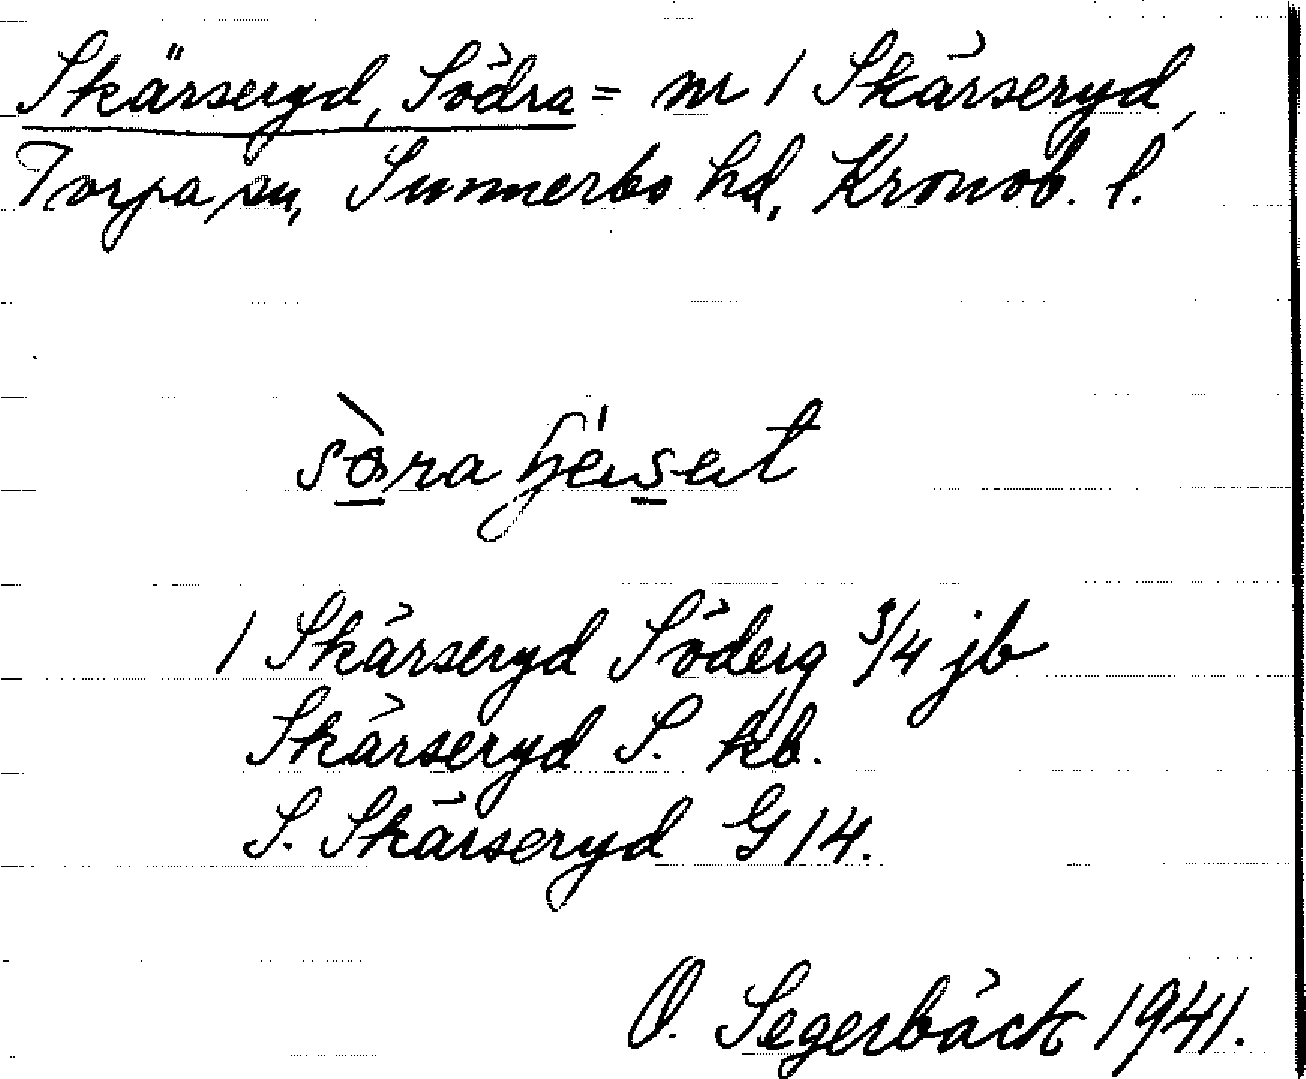 Skärseryd, Södra = nr 1 Skärseryd,
Torpa sn, Sunnerbo hd, Kronob. l.
söra
1 Skärseryd Söderg 3/4 jb
Skärseryd S. kb.
S. Skärseryd G 14.
O. Segerbäck 1941.